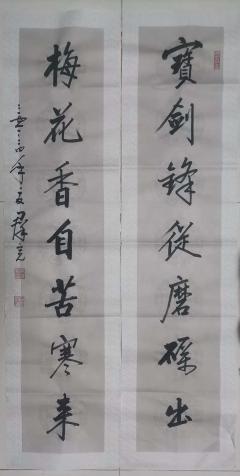 寶劍鋒從磨礪出
梅花香自苦寒來
二〇一四年夏